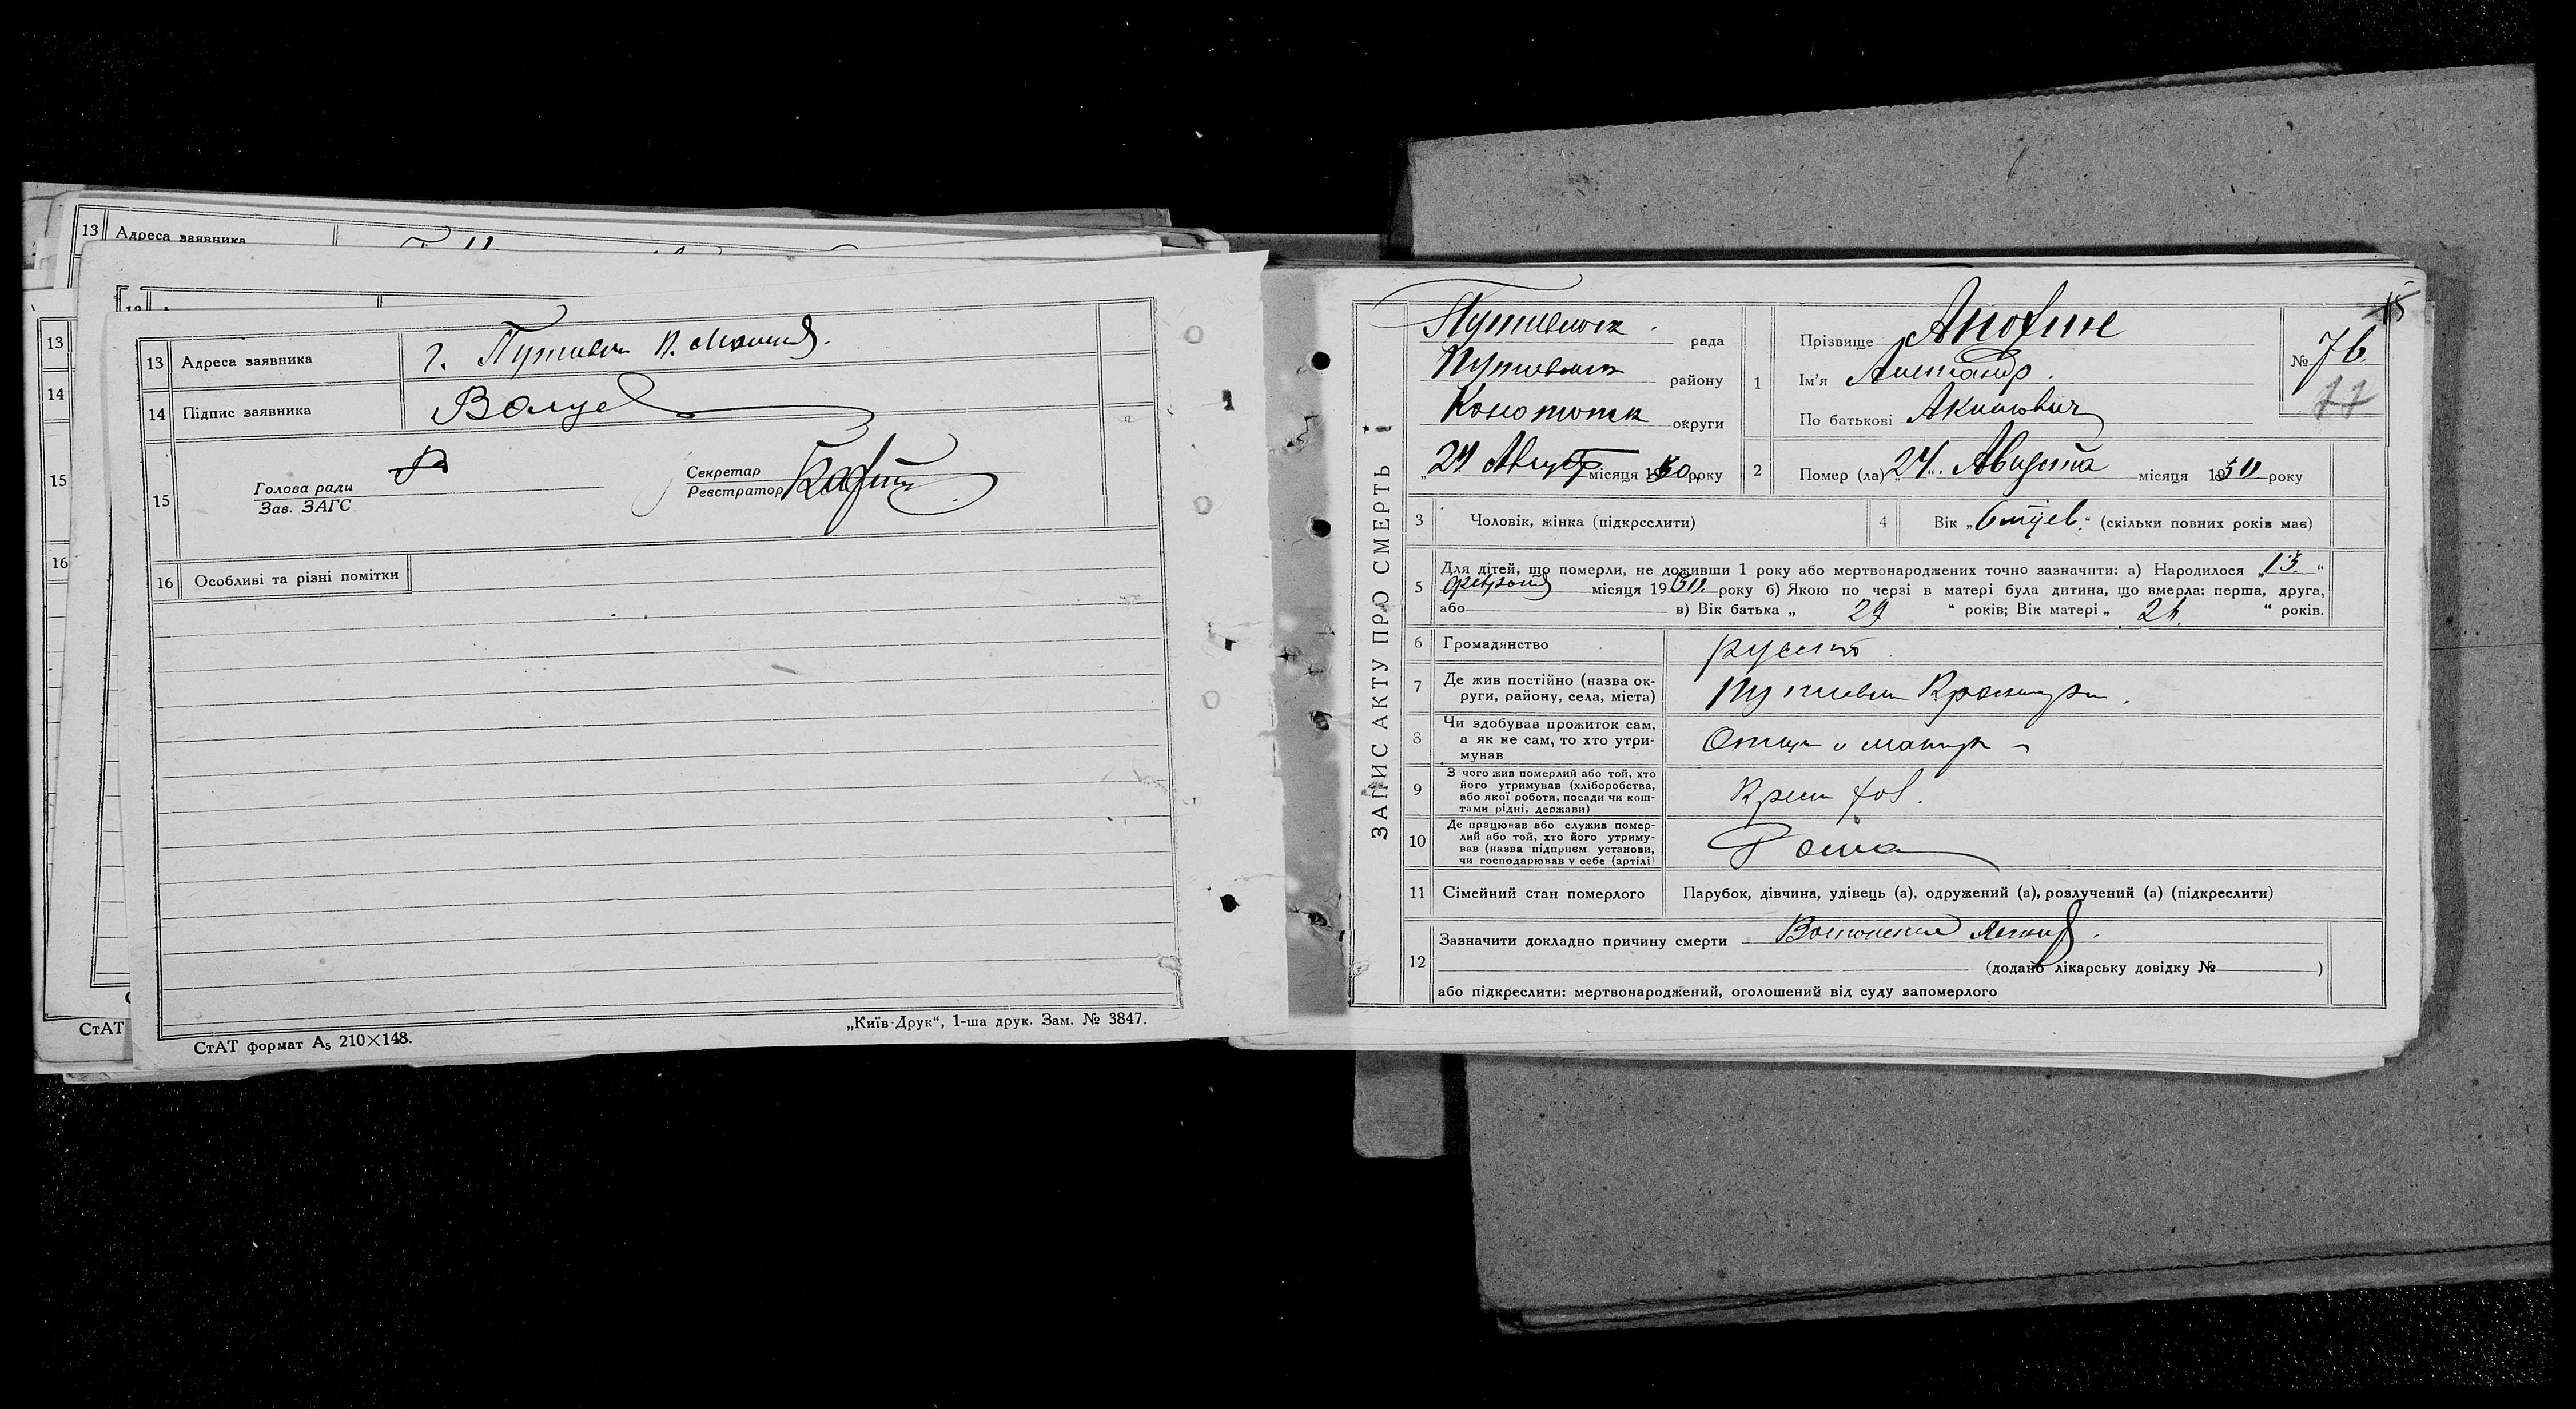 13 Адреса заявника
13 Адреса заявника г. Путивль
14 Підпис заявника
15 Голова ради
Зав. ЗАГС
Секретар
Реєстратор
16 Особливі та різні помітки
СтАТ формат А₅ 210×148.
„Київ-Друк“, 1-ша друк. Зам. № 3847.
13
14
15
16
СтАТ
ЗАПИС АКТУ ПРО СМЕРТЬ
Путивльск рада
Путивльск району
Конотопск округи
„24 Август місяця 1930 року
1 Прізвище
Ім'я Александр
По батькові Акимович
№ 76
77
2 Помер (ла) „24“ Августа місяця 1930 року
3 Чоловік, жінка (підкреслити)
4 Вік „6 мцев“ (скільки повних років має)
5 Для дітей, що померли, не доживши 1 року або мертвонароджених точно зазначити: а) Народилося „13“
февраля місяця 1930 року б) Якою по черзі в матері була дитина, що вмерла: перша, друга,
або в) Вік батька „ 29 “ років; Вік матері „ “ років.
6 Громадянство русский
7 Де жив постійно (назва ок-
руги, району, села, міста) Путивль
8 Чи здобував прожиток сам,
а як не сам, то хто утри-
мував Отец и матерь
9 З чого жив померлий або той, хто
його утримував (хліборобства,
або якої роботи, посади чи кош-
тами рідні, держави) Крест хоз.
10 Де працював або служив помер-
лий або той, хто його утриму-
вав (назва підприєм. установи,
чи господарював у себе (артілі) Дома
11 Сімейний стан померлого Парубок, дівчина, удівець (а), одружений (а), розлучений (а) (підкреслити)
12 Зазначити докладно причину смерти Воспаление легких.
(додано лікарську довідку № )
або підкреслити: мертвонароджений, оголошений від суду запомерлого